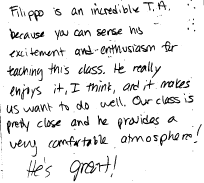 Filippo is an incredible T.A.
because you can sense his
excitement and enthusiasm for
teaching this class. He really
enjoys it, I think, and it makes
us want to do well. Our class is
pretty close and he provides a
very comfortable atmosphere!
He's great!